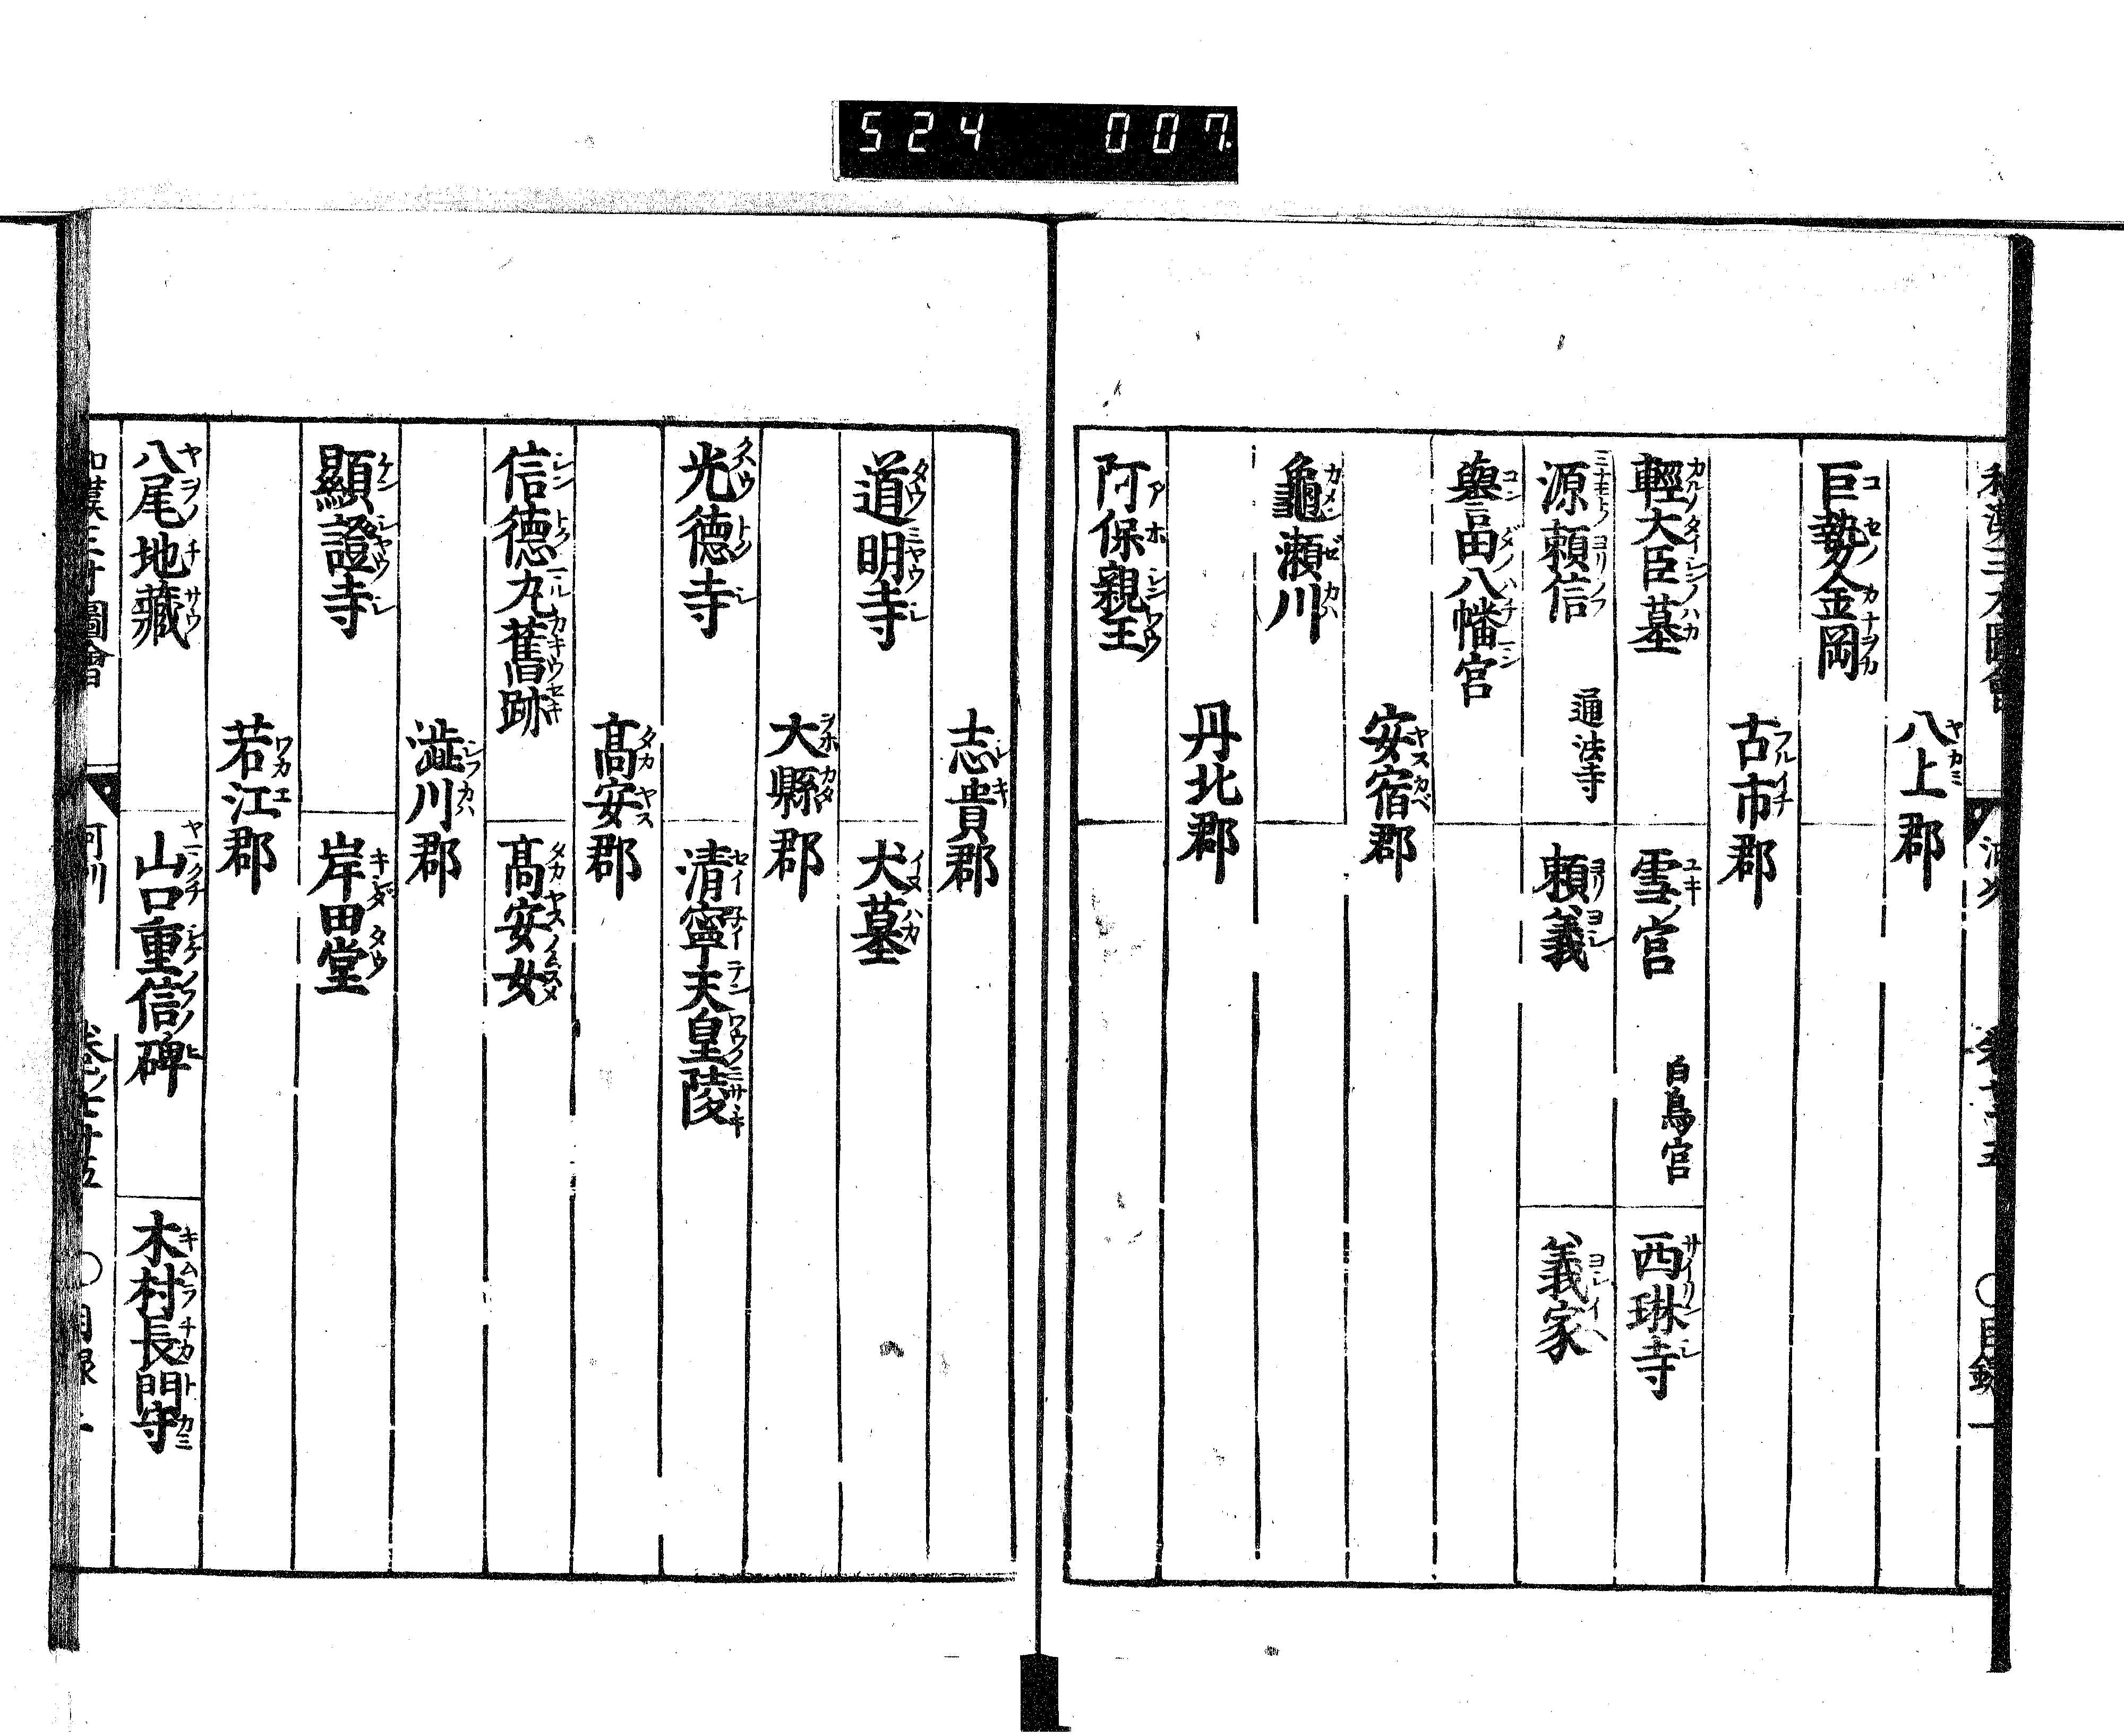 524 007.
和漢三才圖會 河州 卷七十五 ○目録 一
八上郡
巨勢金岡
古市郡
輕大臣墓 雪宮 白鳥宮 西琳寺
源頼信 通法寺 頼義 義家
譽田八幡宮
安宿郡
龜瀬川
丹北郡
阿保親王
志貴郡
道明寺 犬墓
大縣郡
光德寺 清寧天皇陵
髙安郡
信德丸舊跡 髙安女
澁川郡
顯證寺 岸田堂
若江郡
八尾地藏 山口重信碑 木村長門守
和漢三才圖會 河州 卷之七十五 ○目録